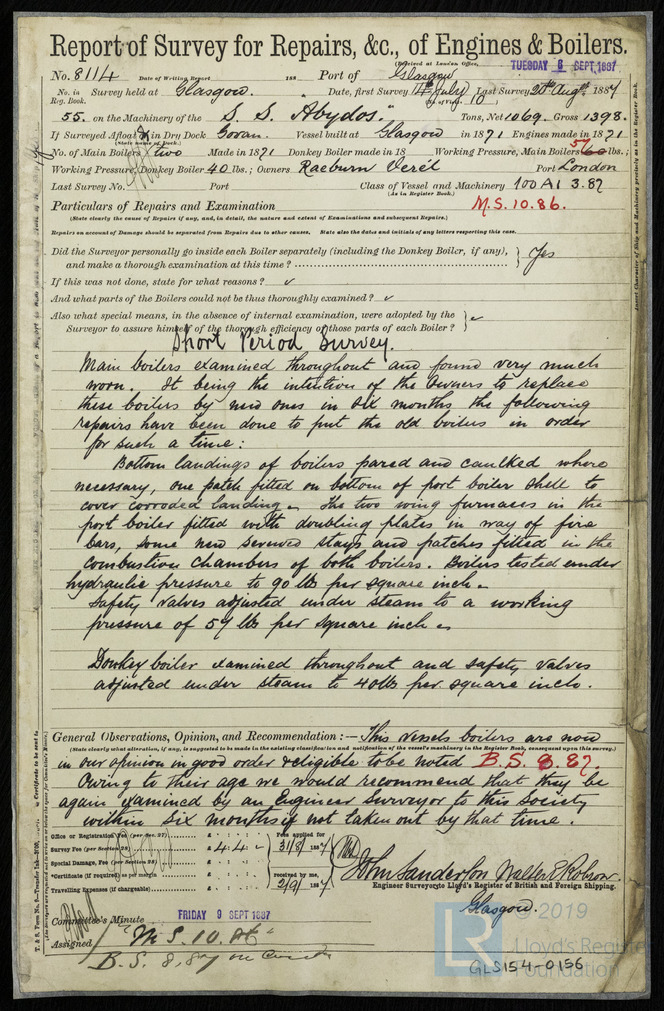 Report of Survey for Repairs, &c., of Engines & Boilers.
(Received at London Office, TUESDAY 6 SEPT. 1887
No. 8114 Date of Writing Report 188 Port of Glasgow
No. in Reg. Book. Survey held at Glasgow. Date, first Survey 14th July Last Survey 20th Augt. 1887
10
55. on the Machinery of the S. S. "Abydos." Tons, Net 1069. Gross 1398.
If Surveyed Afloat or in Dry Dock Govan. Vessel built at Glasgow in 1871 Engines made in 1871
(State name of Dock.)
No. of Main Boilers two Made in 1871 Donkey Boiler made in 18 Working Pressure, Main Boilers 57 60 lbs.;
Working Pressure, Donkey Boiler 40 lbs.; Owners Raeburn Verel Port London
Last Survey No. Port Class of Vessel and Machinery 100 A1 3.87
(As in Register Book.)
Particulars of Repairs and Examination M.S. 10.86.
(State clearly the cause of Repairs if any, and, in detail, the nature and extent of Examinations and subsequent Repairs.)
Repairs on account of Damage should be separated from Repairs due to other causes. State also the dates and initials of any letters respecting this case.
Did the Surveyor personally go inside each Boiler separately (including the Donkey Boiler, if any), and make a thorough examination at this time? Yes
If this was not done, state for what reasons?
And what parts of the Boilers could not be thus thoroughly examined?
Also what special means, in the absence of internal examination, were adopted by the
Surveyor to assure himself of the thorough efficiency of those parts of each Boiler?
Short Period Survey.
Main boilers examined throughout and found very much
worn. It being the intention of the owners to replace
these boilers by new ones in six months the following
repairs have been done to put the old boilers in order
for such a time:
Bottom landings of boilers pared and caulked where
necessary, one patch fitted on bottom of port boiler shell to
cover corroded landing. The two wing furnaces in the
port boiler fitted with doubling plates in way of fire
bars, some new screwed stays and patches fitted in the
combustion chambers of both boilers. Boilers tested under
hydraulic pressure to 90 lbs per square inch.
Safety valves adjusted under steam to a working
pressure of 57 lbs per square inch.
Donkey boiler examined throughout and safety valves
adjusted under steam to 40 lbs per square inch.
General Observations, Opinion, and Recommendation:—This vessels boilers are now
(State clearly what alteration, if any, is suggested to be made in the existing classification and notification of the vessel's machinery in the Register Book, consequent upon this survey.)
in our opinion in good order & eligible to be noted B.S. 8.87.
Owing to their age we would recommend that they be
again examined by an Engineer Surveyor to this Society
within six months if not taken out by that time.
Office or Registration Fee (per Sec. 27) £ : :
Survey Fee (per Section 28) £ 4 : 4 : -
Special Damage, Fee (per Section 28) £ : :
*Certificate (if required) as per margin £ : :
Travelling Expenses (if chargeable) £ : :
Fees applied for 31/8/1887
received by me, 2/9/1887
John Sanderson Walter R Robson
Engineer Surveyors to Lloyd's Register of British and Foreign Shipping.
Glasgow.
Committee's Minute FRIDAY 9 SEPT 1887
Assigned M S. 10. 86
B. S. 8.87
© 2019
LR
Lloyd's Register
Foundation
GLS154-0156
Insert Character of Ship and Machinery precisely as in the Register Book.